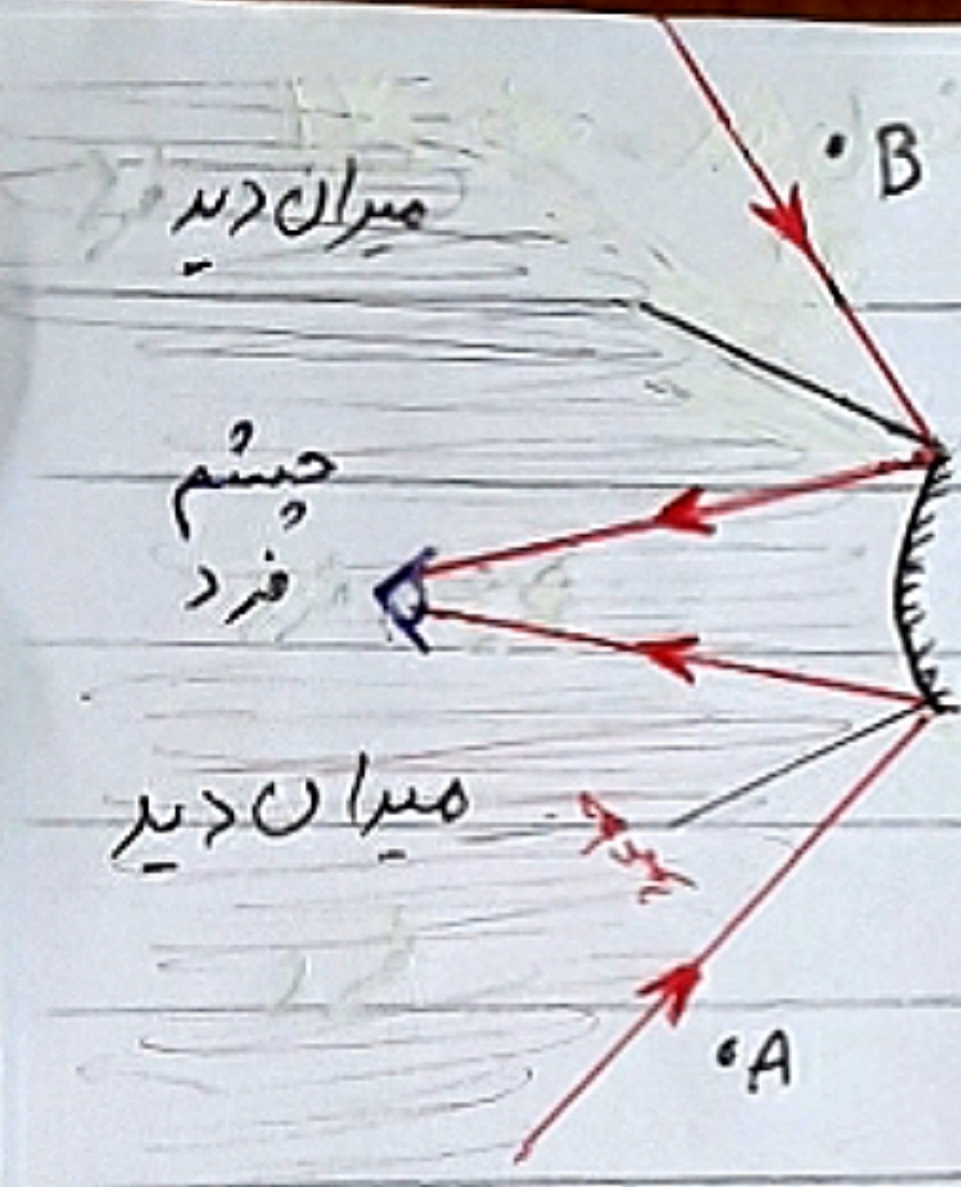 B
میدان دید
چشم
فرد
میدان دید
A